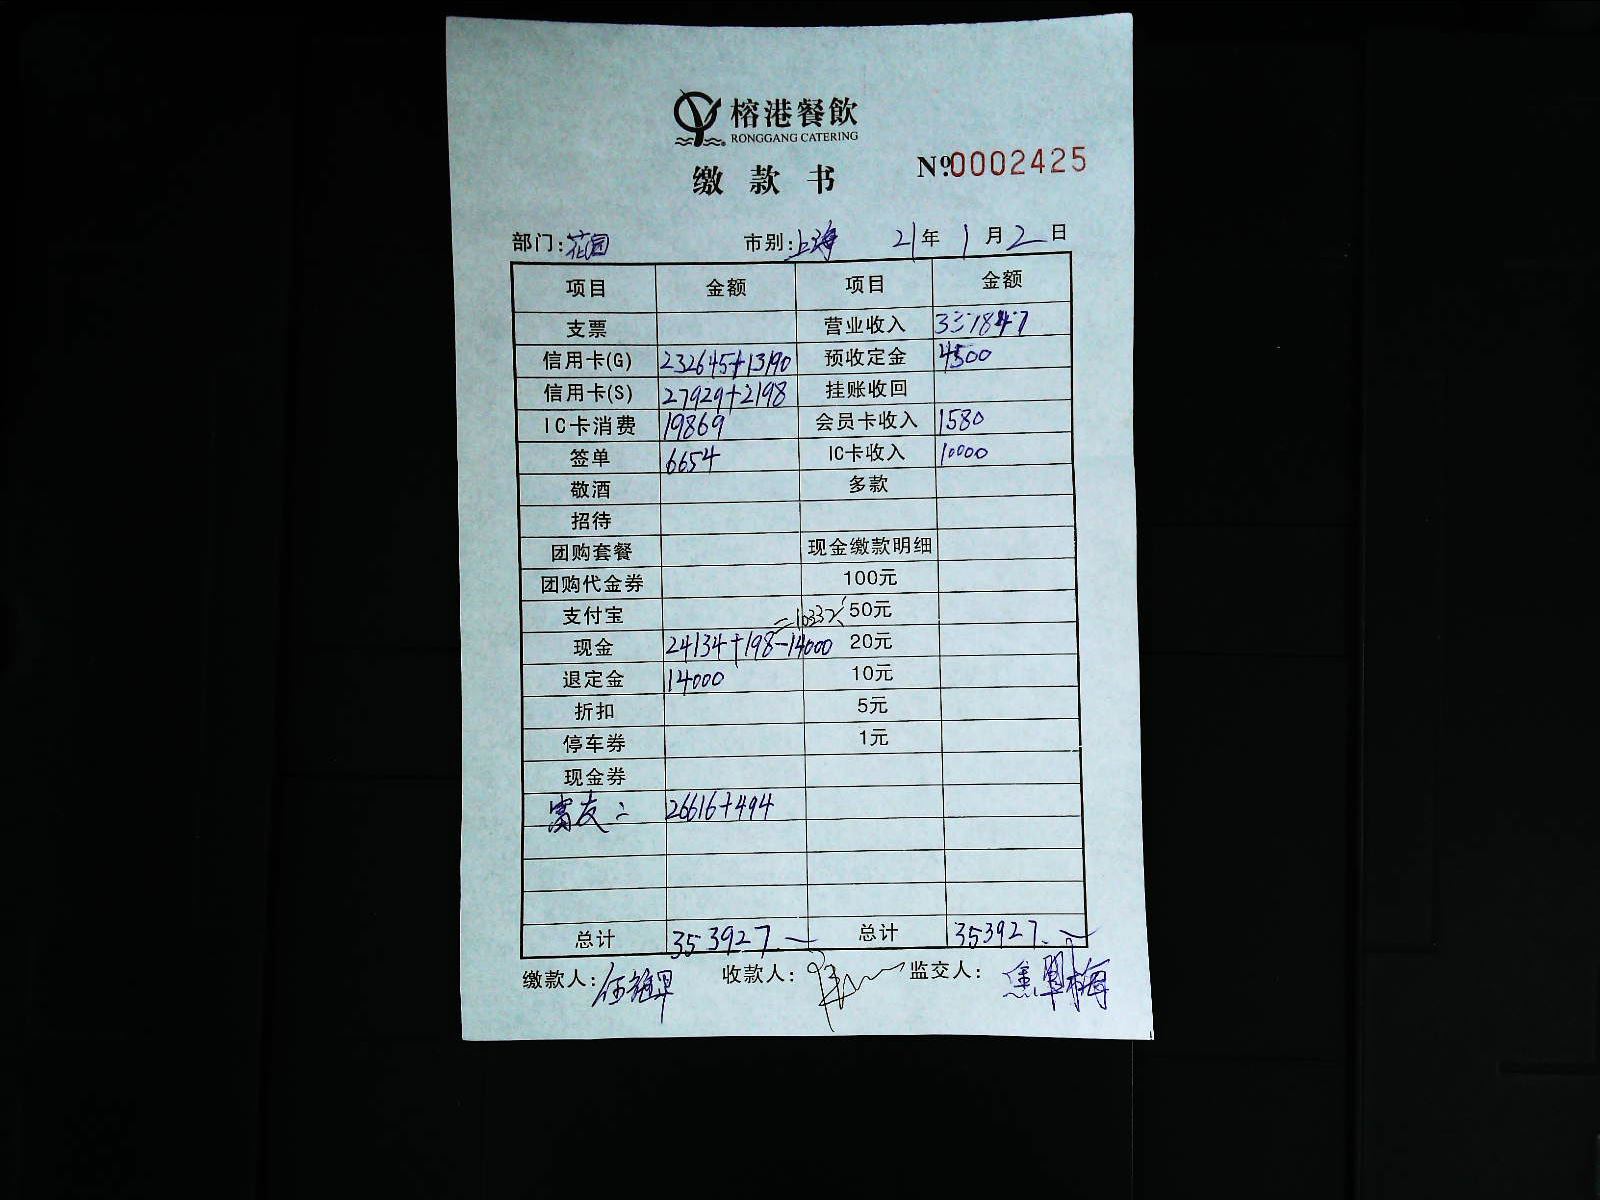 榕港餐飲
RONGGANG CATERING
缴款书 Nº.0002425
部门:花园 市别:上海 21年1月2日
项目 金额 项目 金额
支票 营业收入 337847
信用卡(G) 232645+13190 预收定金 4500
信用卡(S) 27929+2198 挂账收回
IC卡消费 19869 会员卡收入 1580
签单 6654 IC卡收入 10000
敬酒 多款
招待
团购套餐 现金缴款明细
团购代金券 100元
支付宝 =10332 50元
现金 24134+198-14000 20元
退定金 14000 10元
折扣 5元
停车券 1元
现金券
富友: 26616+494
总计 353927.— 总计 353927.—
缴款人: 收款人: 监交人: